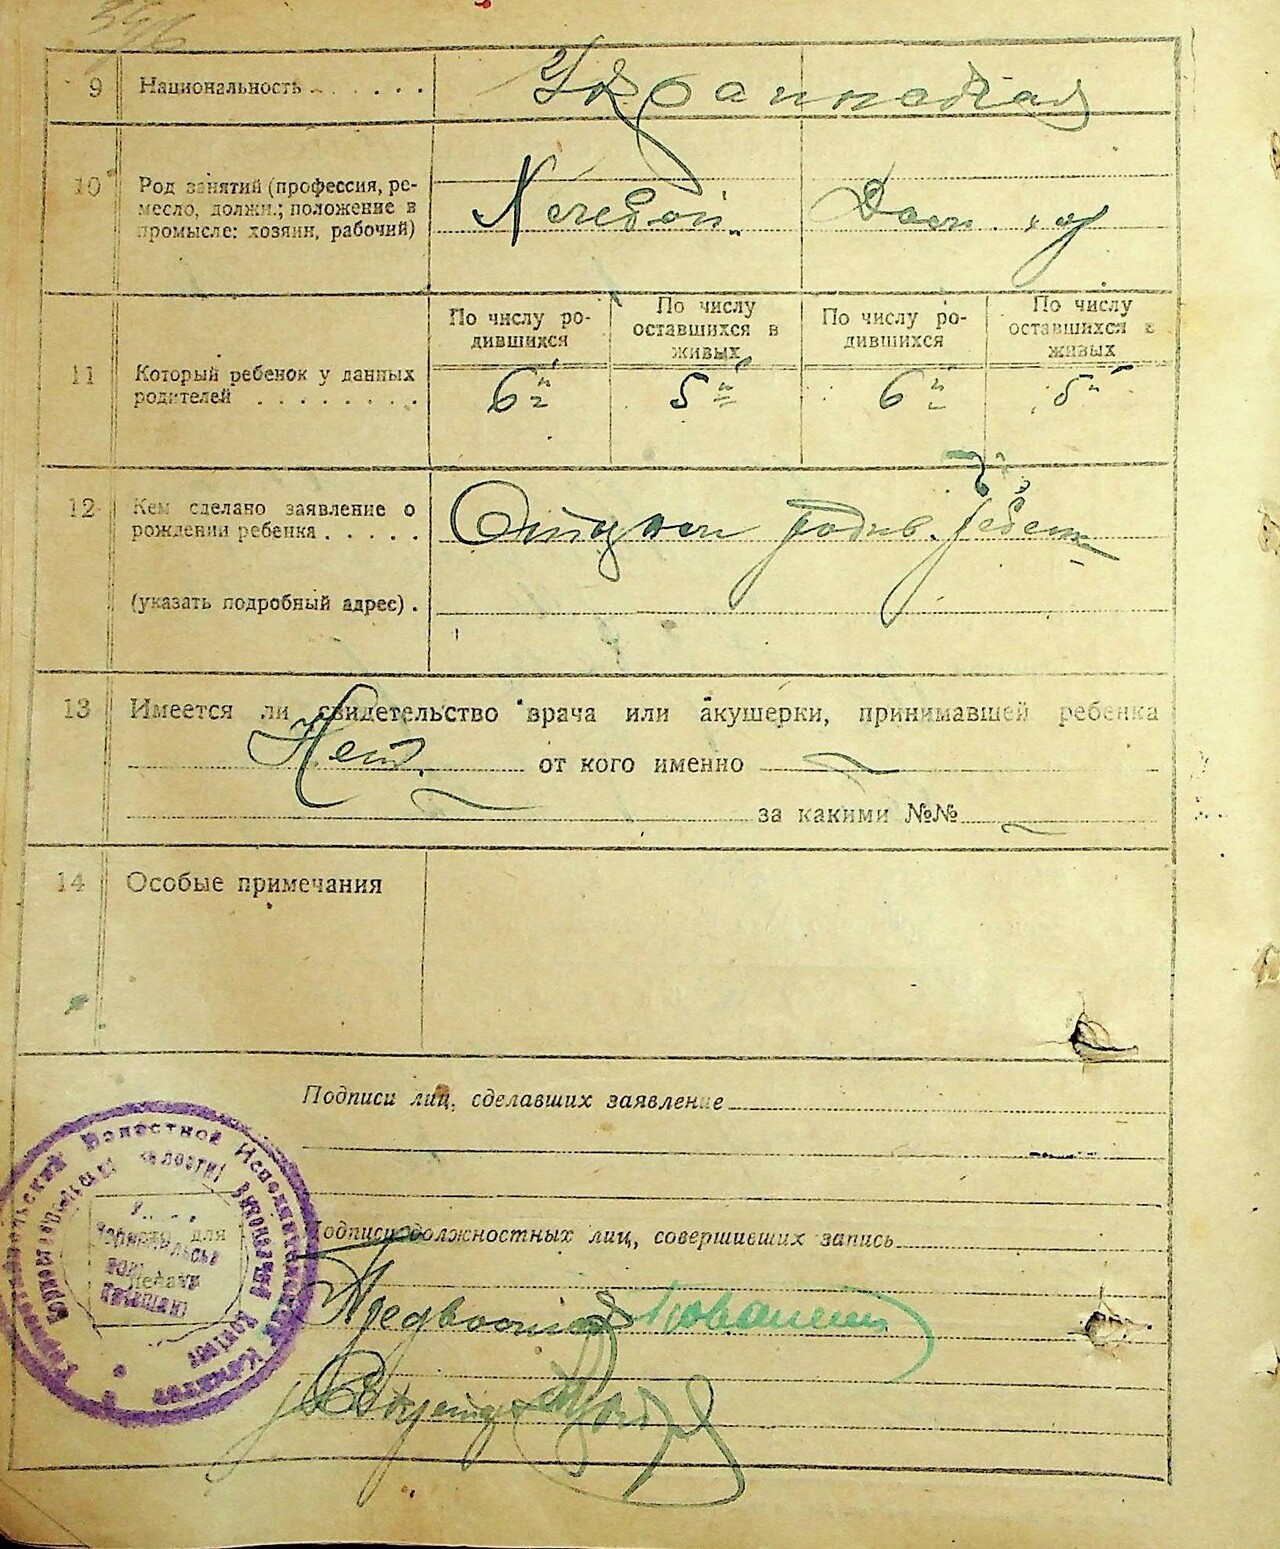 9 Национальность . . . . . . Украинская
10 Род занятий (профессия, ре-
месло, должн.; положение в
промысле: хозяин, рабочий)
Хлебоп. Дом. хоз
11 Который ребенок у данных
родителей . . . . . . . .
По числу ро-
дившихся
По числу
оставшихся в
живых
По числу ро-
дившихся
По числу
оставшихся в
живых
6й 5й 6й 5й
12 Кем сделано заявление о
рождении ребенка . . . . .
(указать подробный адрес) .
Отцом родив. ребен
13 Имеется ли свидетельство врача или акушерки, принимавшей ребенка
Нет. от кого именно
за какими №№
14 Особые примечания
Подписи лиц, сделавших заявление
Подписи должностных лиц, совершивших запись
Волостной Исполнительный Комитет
для
печати
Предволисп
Секретарь